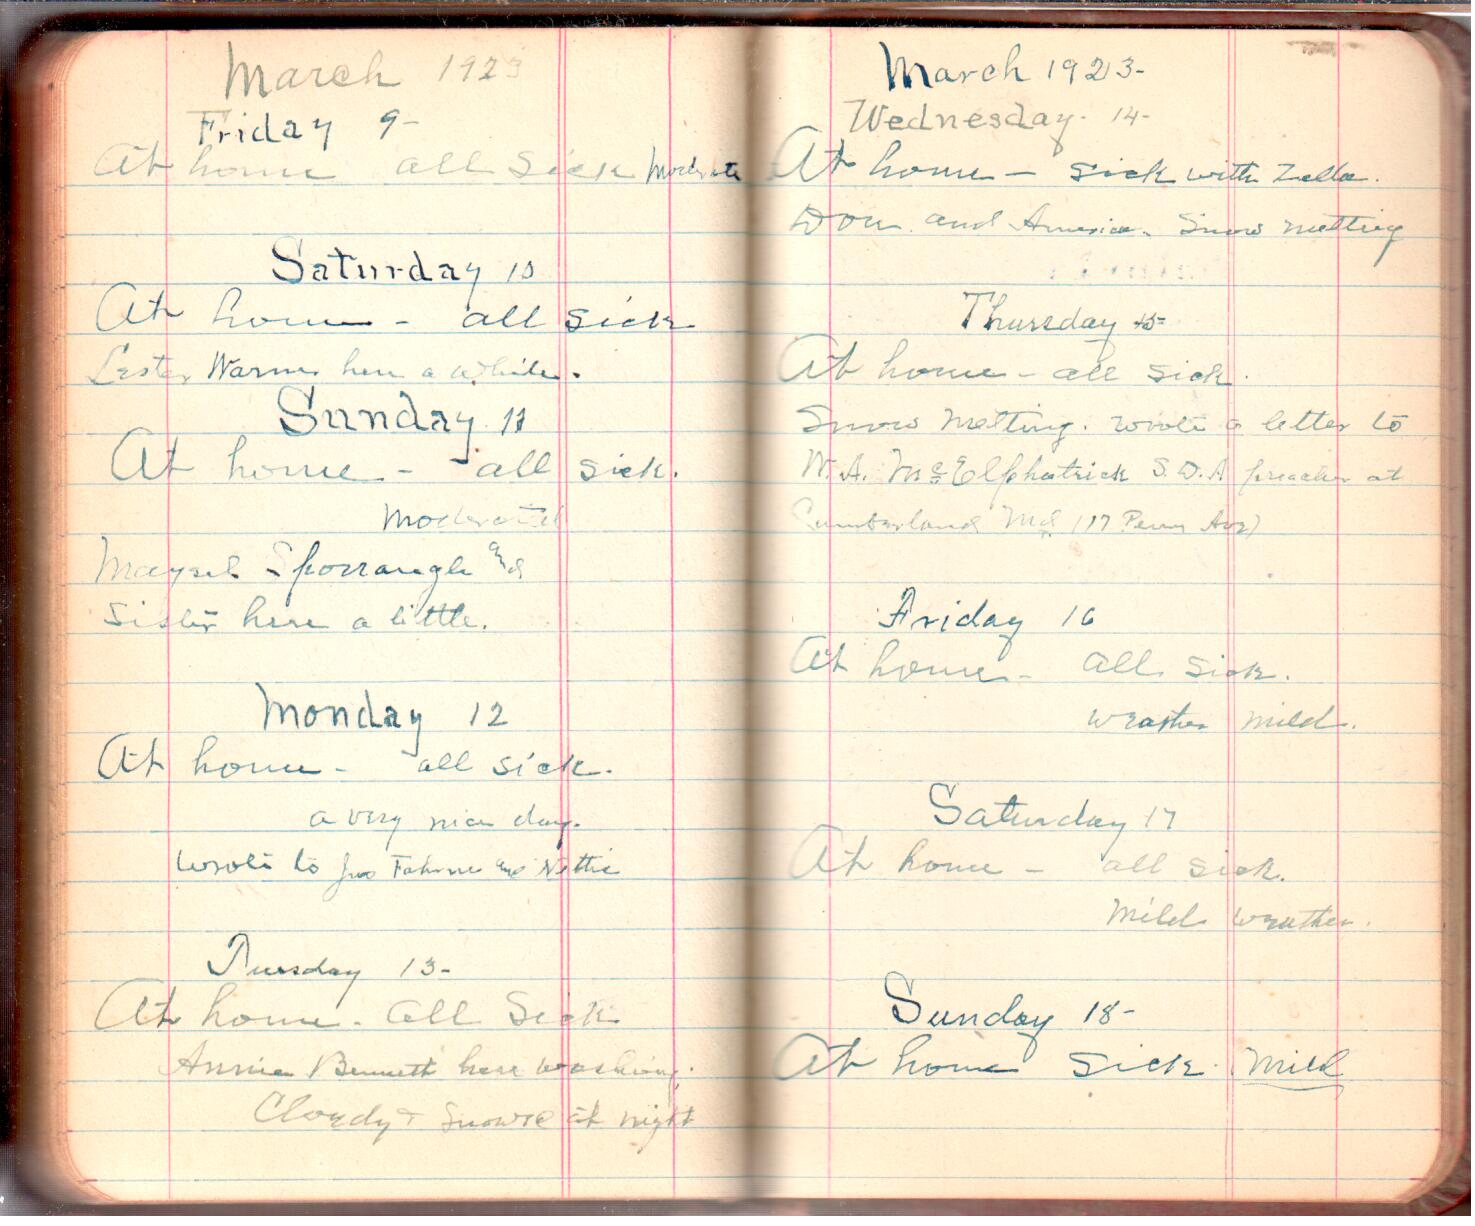 March 1923
Friday 9-
At home all sick Moderate
Saturday 10
At home - all sick
Lester Warner here a while.
Sunday 11
At home - all sick.
Moderated
Maysel and
Sister here a little.
Monday 12
At home - all sick.
a very nice day.
wrote to Jno and Nettie
Tuesday 13-
At home - all sick
Annie Bennett here washing.
Cloudy & snowed at night
March 1923-
Wednesday- 14-
At home - sick with Zella.
Don and America. Snow melting
Thursday 15-
At home - all sick.
Snow melting. wrote a letter to
W. A. McElphatrick S.D.A preacher at
Cumberland Md (17 Penn Ave)
Friday 16
At home - all sick.
weather mild.
Saturday 17
At home - all sick.
Mild weather.
Sunday 18-
At home sick. Mild